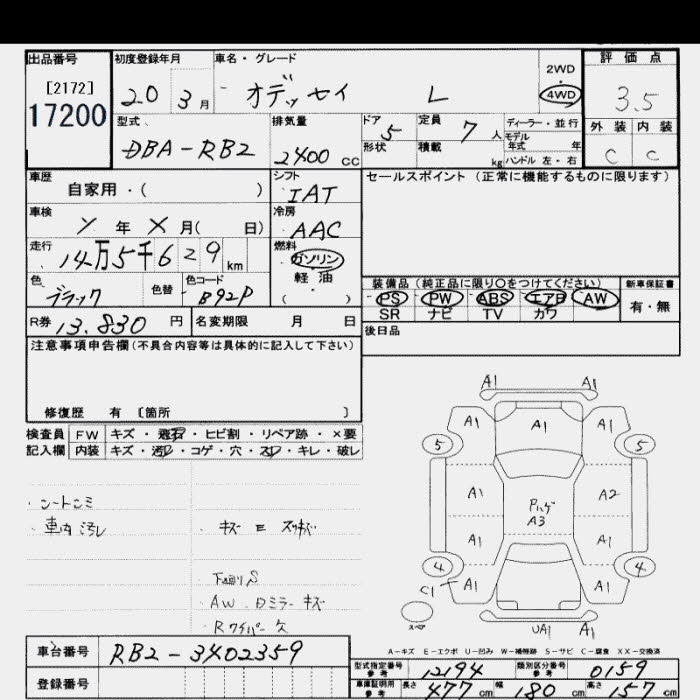 出品番号 初度登録年月 車名・グレード 2WD 評価点
[2172] 20 3月 オデッセイ L 4WD 3.5
17200
型式 排気量 ドア 定員 ディーラー・並行 外装 内装
DBA-RB2 2400 CC 5 7人 モデル年式 年 C C
形状 積載 kg ハンドル 左・右
車歴 シフト セールスポイント (正常に機能するものに限ります)
自家用・( ) IAT
車検 冷房
年 X 月( 日) AAC
走行 燃料
14万5千629km ガソリン
軽油
( )
色 色替 色コード
ブラック B92P
装備品 (純正品に限り○をつけてください) 新車保証書
PS PW ABS エアB AW 有・無
SR ナビ TV カワ
R券 13,830 円 名変期限 月 日
後日品
注意事項申告欄(不具合内容等は具体的に記入して下さい)
修復歴 有 〔箇所 〕
検査員 FW キズ・飛石・ヒビ割・リペア跡・×要
記入欄 内装 キズ・汚れ・コゲ・穴・スレ・キレ・破レ
A1 A1
A1 A1 A1
5 5
A1 Pハゲ A2
A3
A1 A1
4 4
C1 A1 A1
スペア UA1 A1
車内汚レ
AW.Dミラーキズ
Rワイパー欠
A-キズ E-エクボ U-凹み W-補修跡 S-サビ C-腐食 XX-交換済
車台番号 RB2-3402359
登録番号
型式指定番号 参考 12194 類別区分番号 参考 0159
車庫証明用 参考 長さ 477cm 幅 180cm 高さ 157cm